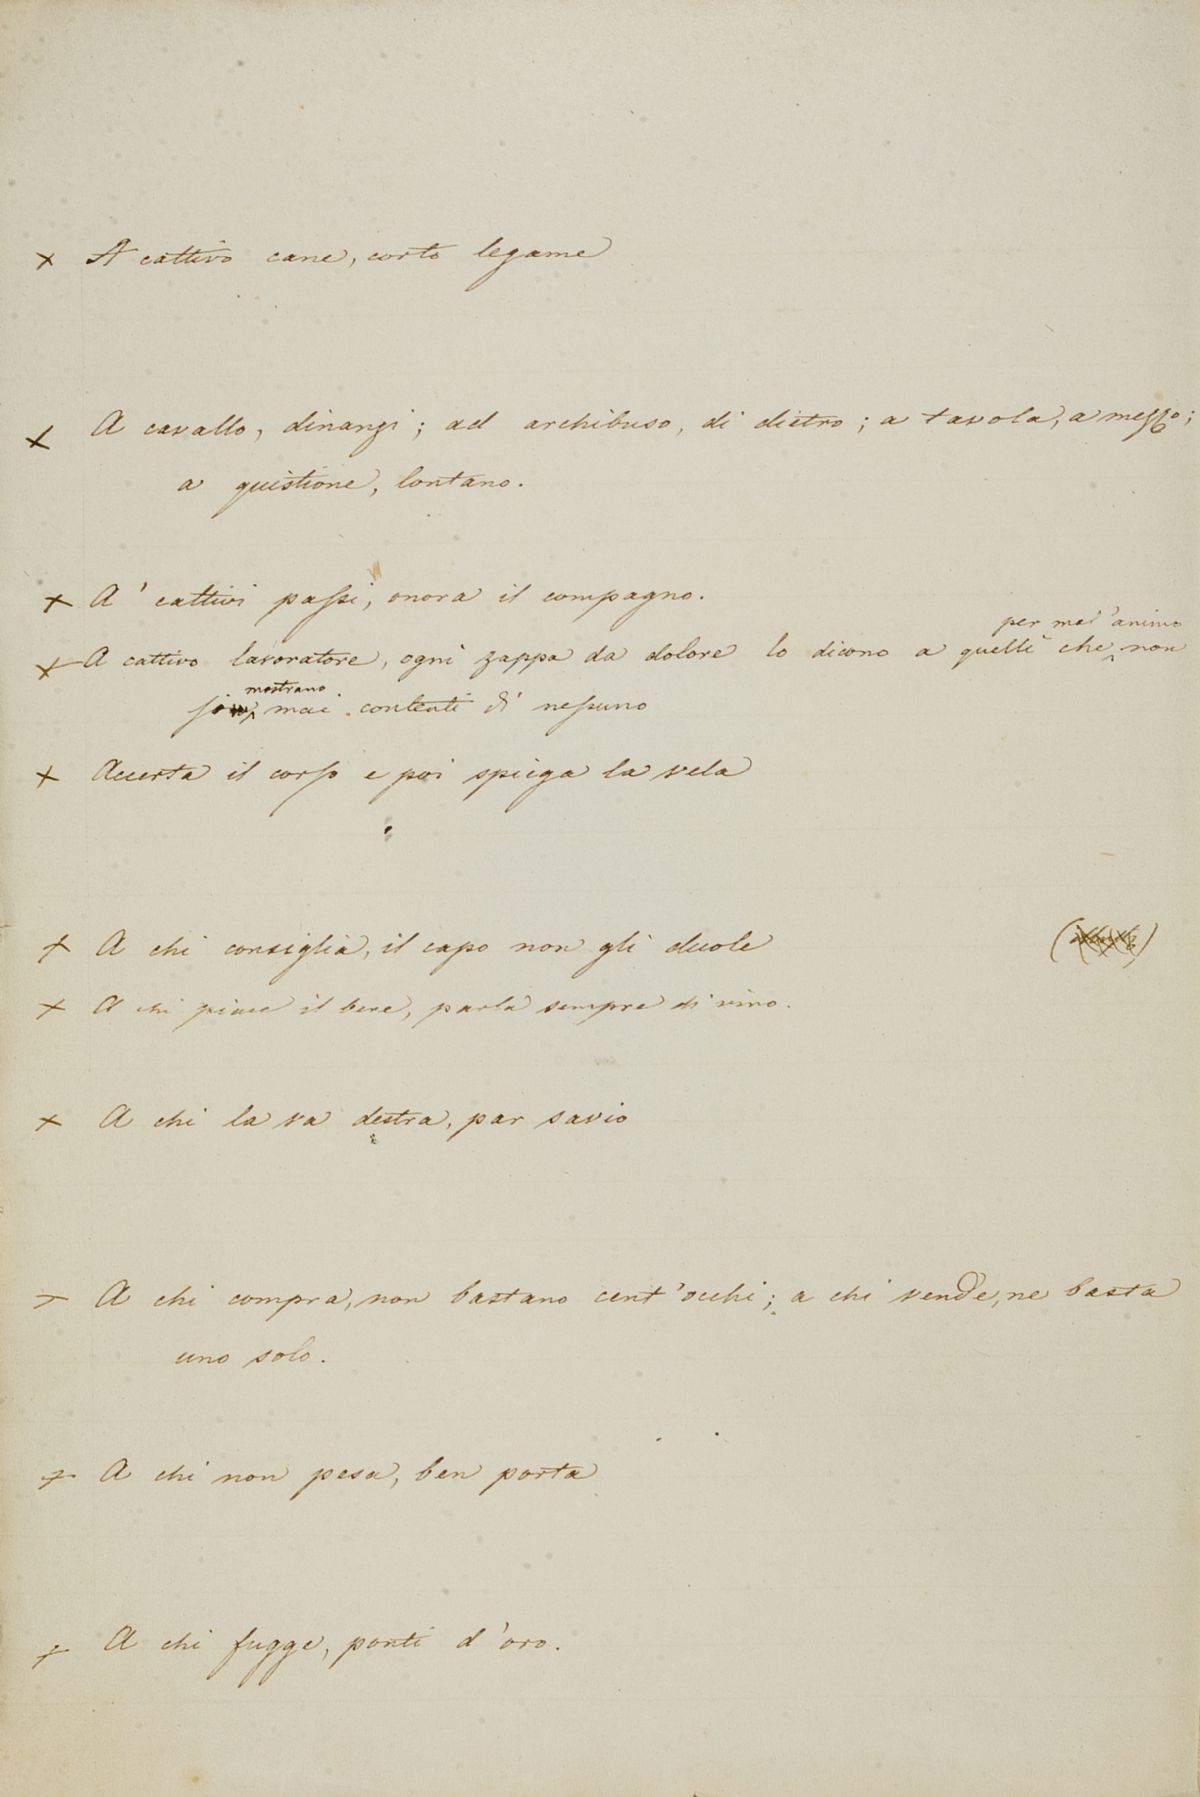 × A cattivo cane, corto legame
× A cavallo, dinanzi; ad archibuso, di dietro; a tavola, a mezzo;
a quistione, lontano.
× A' cattivi passi, onora il compagno.
per mal'animo
× A cattivo lavoratore, ogni zappa da dolore lo dicono a quelli che non
mostrano
si mai contenti di nessuno
× Accerta il corso e poi spiega la vela
× A chi consiglia, il capo non gli duole
× A chi piace il bere, parla sempre di vino.
× A chi la va destra, par savio
× A chi compra, non bastano cent'occhi; a chi vende, ne basta
uno solo.
× A chi non pesa, ben porta
× A chi fugge, ponti d'oro.